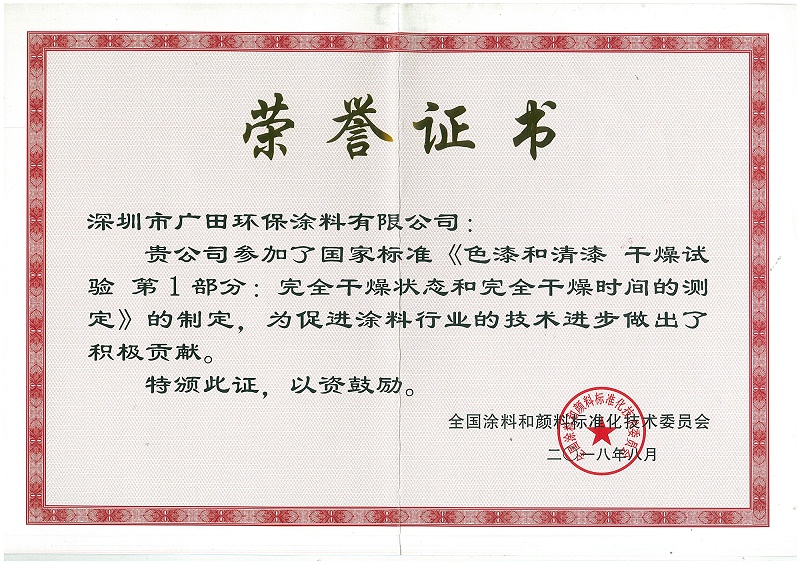 荣誉证书
深圳市广田环保涂料有限公司：
贵公司参加了国家标准《色漆和清漆 干燥试
验 第1部分：完全干燥状态和完全干燥时间的测
定》的制定，为促进涂料行业的技术进步做出了
积极贡献。
特颁此证，以资鼓励。
全国涂料和颜料标准化技术委员会
二〇一八年八月
全国涂料和颜料标准化技术委员会